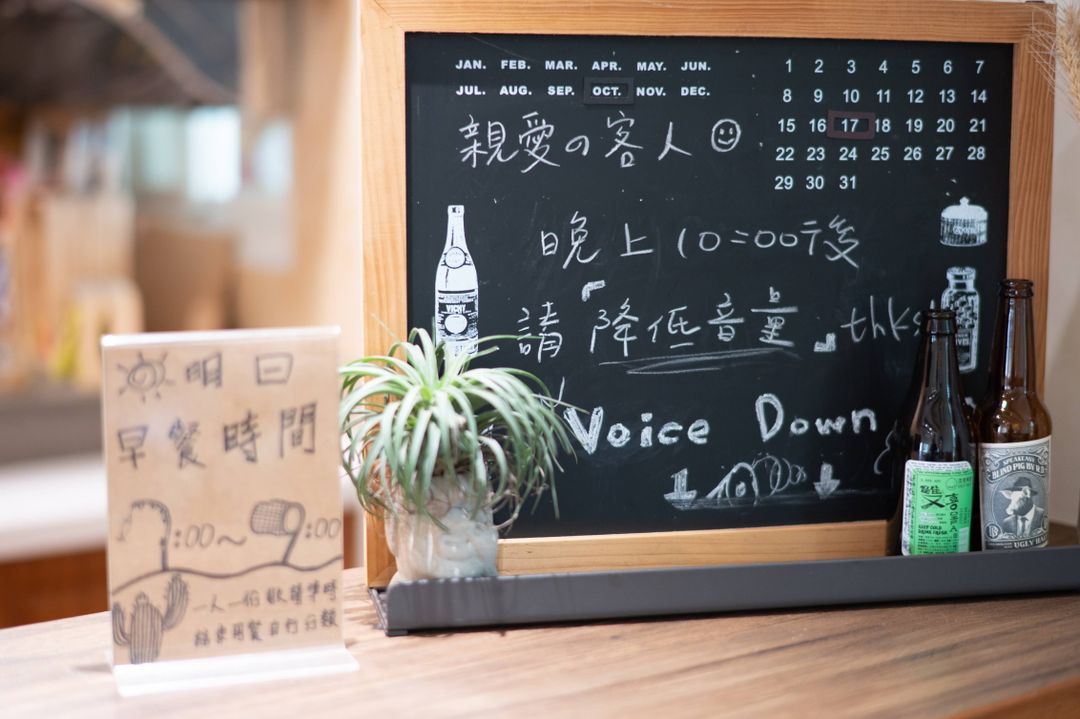 JAN. FEB. MAR. APR. MAY. JUN.
JUL. AUG. SEP. OCT. NOV. DEC.
1 2 3 4 5 6 7
8 9 10 11 12 13 14
15 16 17 18 19 20 21
22 23 24 25 26 27 28
29 30 31
親愛の客人
晚上10:00後
「請降低音量」thks
Voice Down
明日
早餐時間
7:00~9:00
一人一份
BLIND PIG
UGLY HALF